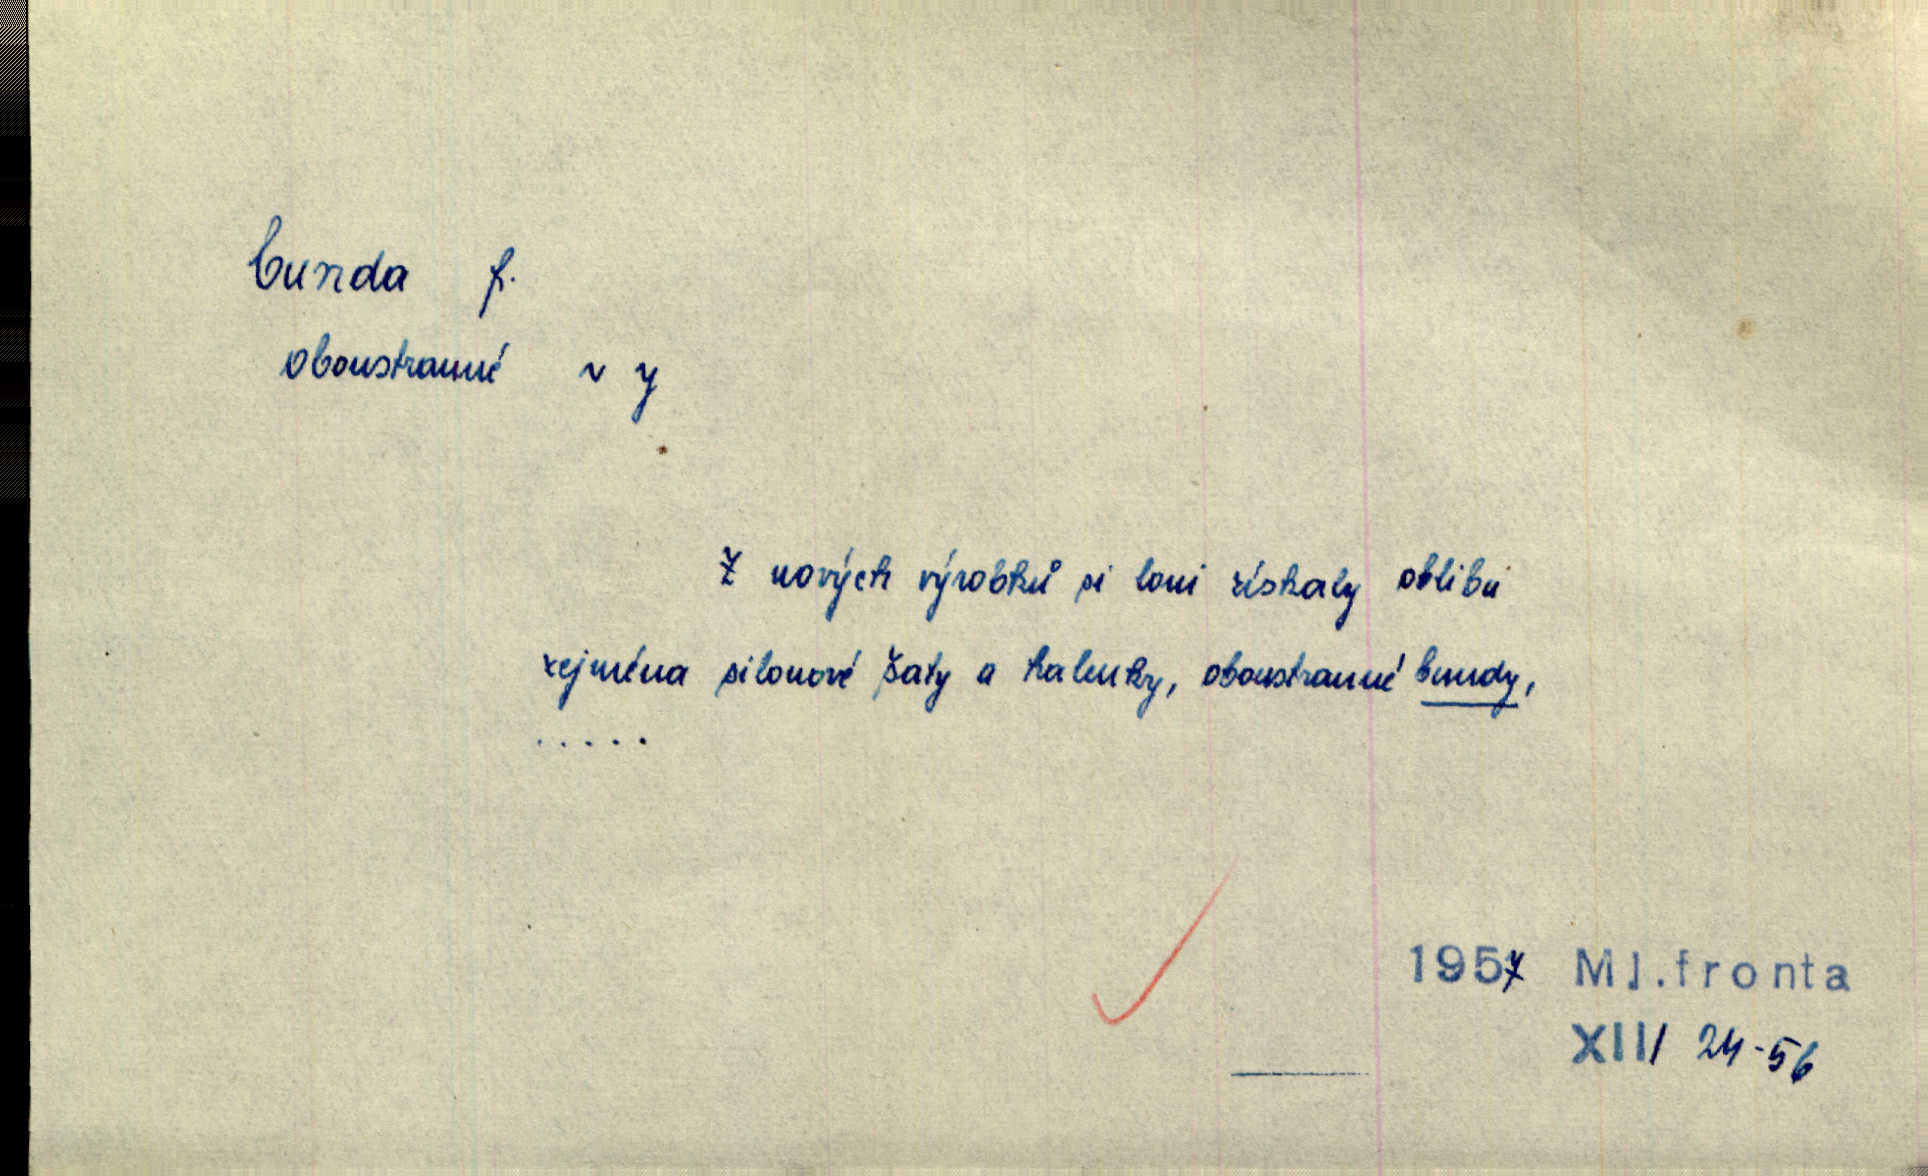 bunda f.
oboustranné ~ y
Z nových výrobků si loni získaly oblibu
zejména silonové šaty a halenky, oboustranné bundy,
.....
1957 Ml.fronta
XIII 24-56